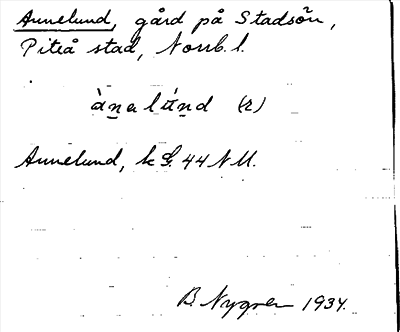 Annelund, gård på Stadsön,
Piteå stad, Norrb. l.
ànalúnd (r)
Annelund, k G. 44 N M.
B. Nygren 1934.